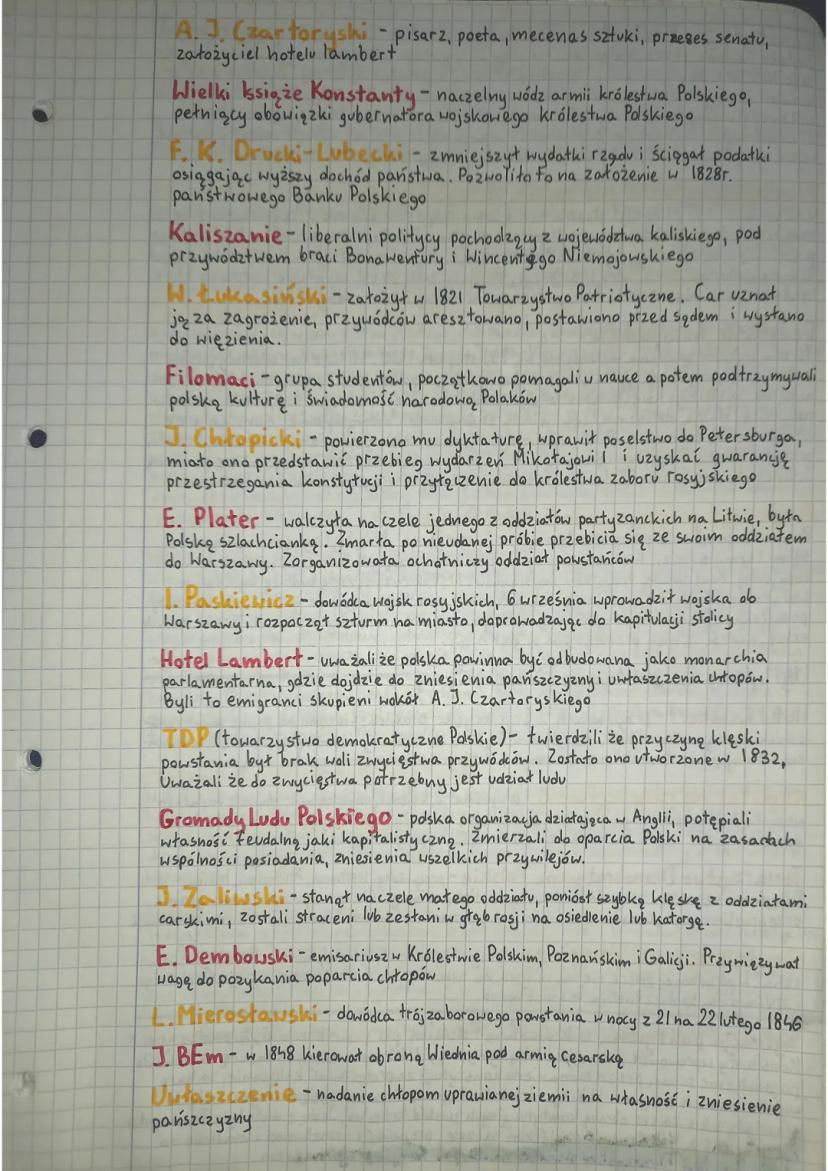 A. J. Czartoryski - pisarz, poeta, mecenas sztuki, prezes senatu,
założyciel hotelu lambert
Wielki książe Konstanty - naczelny wódz armii królestwa Polskiego,
pełniący obowiązki gubernatora wojskowego królestwa Polskiego
F. K. Drucki-Lubecki - zmniejszył wydatki rządu i ściągał podatki
osiągając wyższy dochód państwa. Pozwoliło to na założenie w 1828r.
państwowego Banku Polskiego
Kaliszanie - liberalni politycy pochodzący z województwa kaliskiego, pod
przywództwem braci Bonawentury i Wincentego Niemojowskiego
W. Łukasiński - założył w 1821 Towarzystwo Patriotyczne. Car uznał
ją za zagrożenie, przywódców aresztowano, postawiono przed sądem i wysłano
do więzienia.
Filomaci - grupa studentów, początkowo pomagali w nauce a potem podtrzymywali
polską kulturę i świadomość narodową Polaków
J. Chłopicki - powierzono mu dyktaturę, wprawił poselstwo do Petersburga,
miało ono przedstawić przebieg wydarzeń Mikołajowi I i uzyskać gwarancję
przestrzegania konstytucji i przyłączenie do królestwa zaboru rosyjskiego
E. Plater - walczyła na czele jednego z oddziałów partyzanckich na Litwie, była
Polską szlachcianką. Zmarła po nieudanej próbie przebicia się ze swoim oddziałem
do Warszawy. Zorganizowała ochotniczy oddział powstańców
I. Paskiewicz - dowódca wojsk rosyjskich, 6 września wprowadził wojska do
Warszawy i rozpoczął szturm na miasto, doprowadzając do kapitulacji stolicy
Hotel Lambert - uważali że polska powinna być odbudowana jako monarchia
parlamentarna, gdzie dojdzie do zniesienia pańszczyzny i uwłaszczenia chłopów.
Byli to emigranci skupieni wokół A. J. Czartoryskiego
TDP (towarzystwo demokratyczne Polskie) - twierdzili że przyczyną klęski
powstania był brak woli zwycięstwa przywódców. Zostało ono utworzone w 1832,
Uważali że do zwycięstwa potrzebny jest udział ludu
Gromady Ludu Polskiego - polska organizacja działająca w Anglii, potępiali
własność feudalną jak i kapitalistyczną. Zmierzali do oparcia Polski na zasadach
wspólności posiadania, zniesienia wszelkich przywilejów.
J. Zaliwski - stanął na czele małego oddziału, poniósł szybką klęskę z oddziałami
carskimi, zostali straceni lub zesłani w głąb rosji na osiedlenie lub katorgę.
E. Dembowski - emisariusz w Królestwie Polskim, Poznańskim i Galicji. Przywiązywał
wagę do pozykania poparcia chłopów
L. Mierosławski - dowódca trójzaborowego powstania w nocy z 21 na 22 lutego 1846
J. BEm - w 1848 kierował obroną Wiednia pod armią cesarską
Uwłaszczenie - nadanie chłopom uprawianej ziemii na własność i zniesienie
pańszczyzny